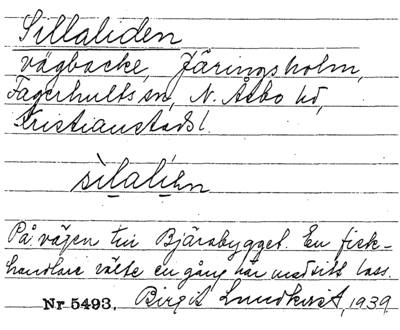 Sillaliden
vägbacke, Järingsholm,
Fagerhults sn, N. Åsbo hd,
Kristianstads l.
sìlalíḥn
På vägen till Bjärabygget. En fisk-
handlare välte en gång här med sitt lass.
Nr 5493. Birgit Lundkvist, 1939.